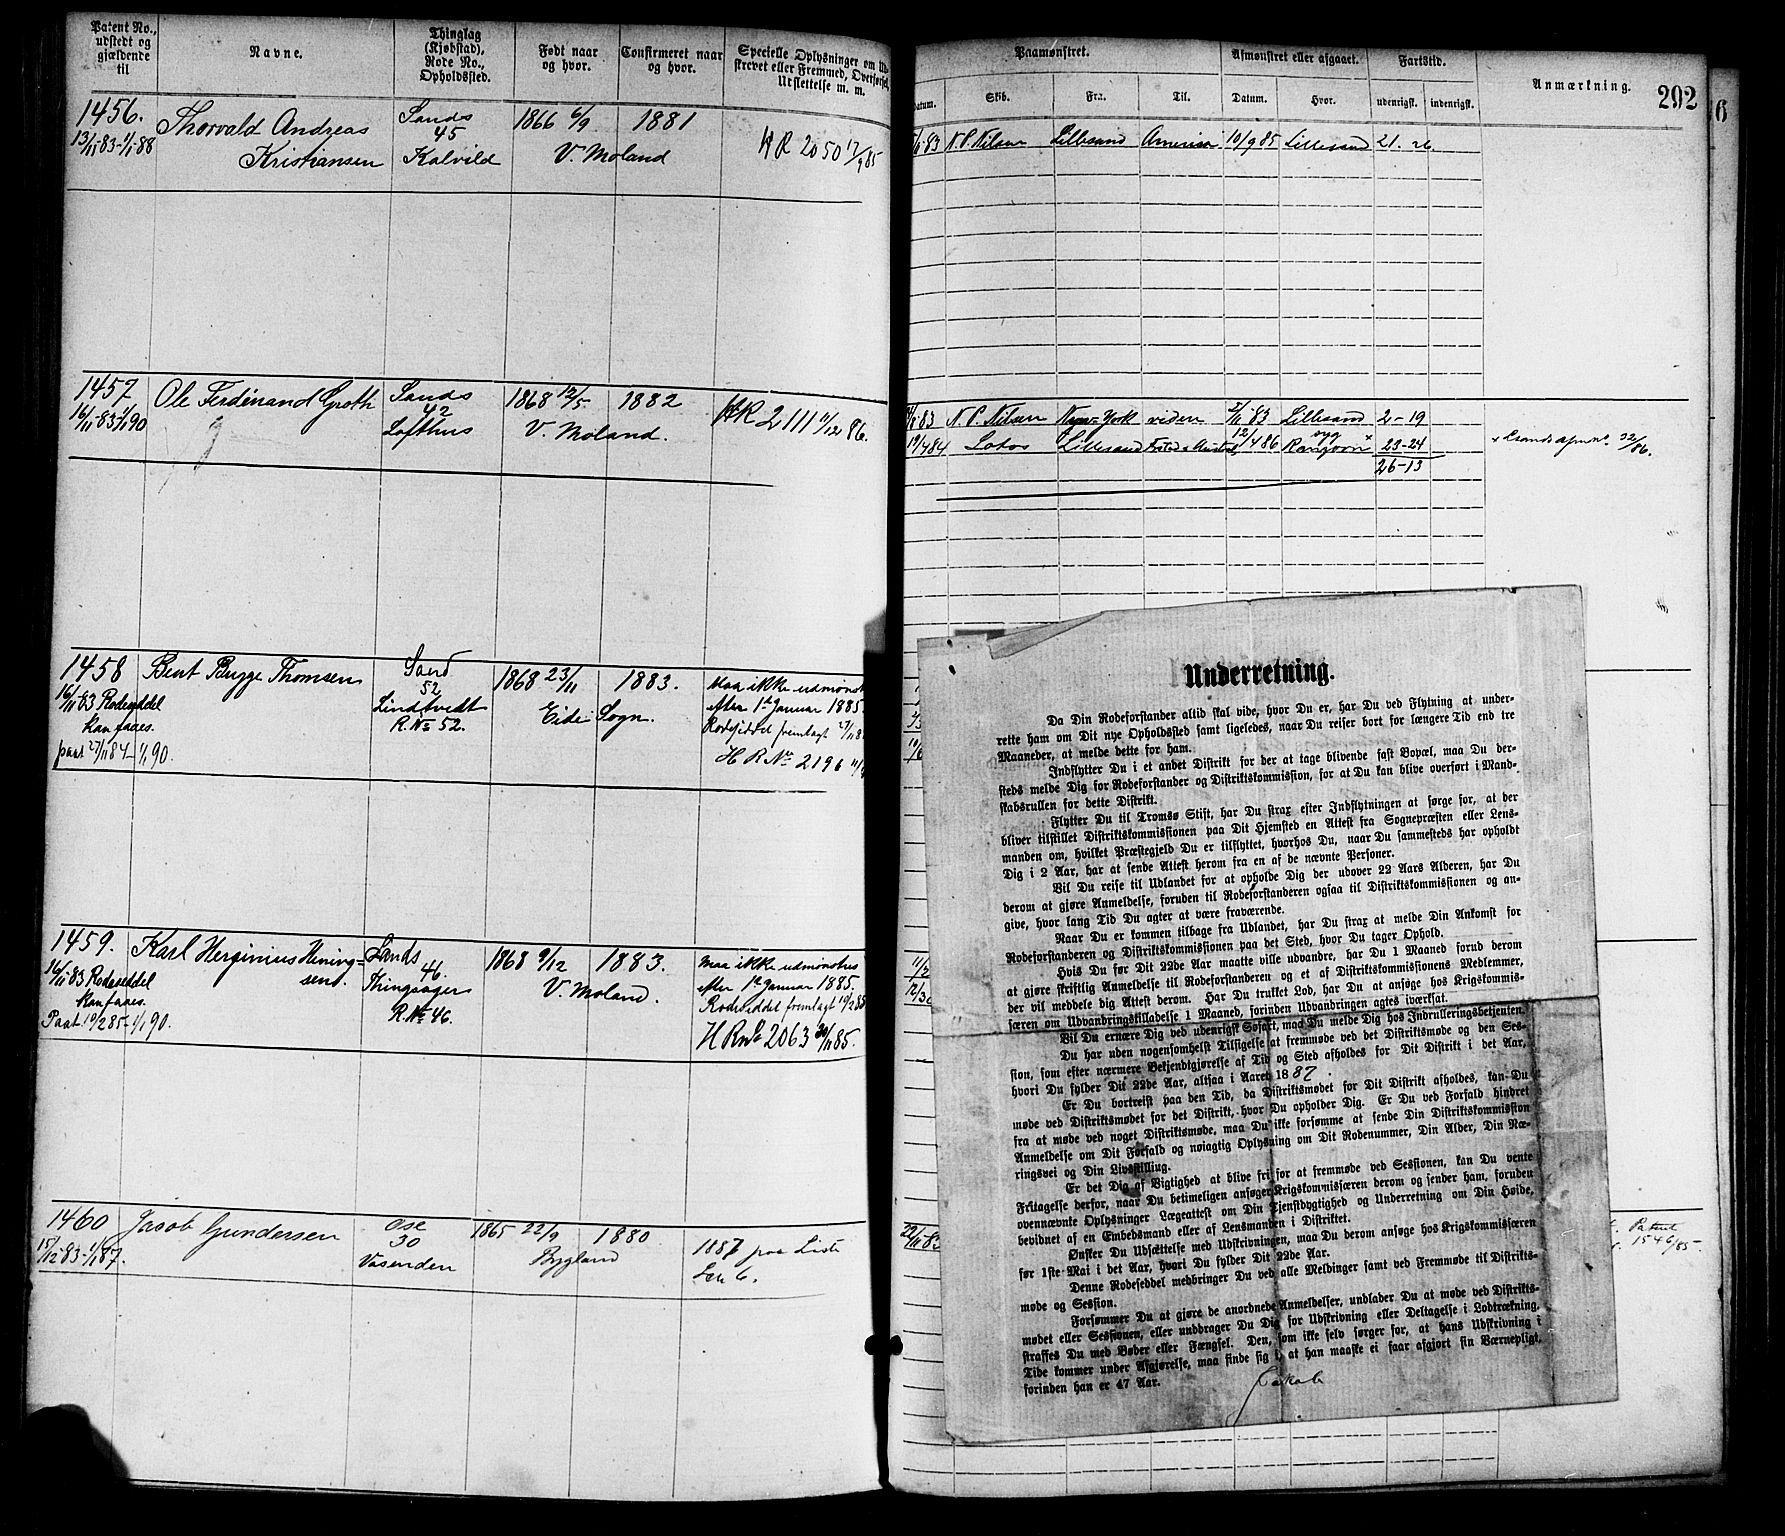 Patent No., udstedt og gjældende til
Navne.
Thinglag (Kjøbstad), Rode No., Opholdssted.
Født naar og hvor.
Confirmeret naar og hvor.
Specielle Oplysninger om Ud-
skrevet eller Fremmed, Overførsel,
Udslettelse m. m.
1456.
13/11 83-1/1 88
Thorvald Andreas
Kristiansen
Sands
45
Kalvild
1866 6/9
1881
V. Moland
HR 2050 17/9 85
1457
16/11 83-1/1 90
Ole Ferdinand Groth
Sands
42
Lofthus
1868 12/5
1882
V. Moland.
HR 2111 11/12 86.
1458
16/11 83 Rodeseddel
kan faaes.
paat 27/11 84-1/1 90.
Bent Bugge Thomsen
Sand
52
Lindtvedt
R. No 52.
1868 23/11
1883.
Eide Sogn.
Maa ikke udmønst
efter 1ste Januar 1885
Rodeseddel fremlagt 27/11 8
H R No 2196
1459.
16/11 83 Rodeseddel
kan faaes.
Paat 19/2 85-1/1 90.
Karl Herginius Hening=
send.
Sands
46.
Thingsager
R. No 46.
1868 9/12
1883.
V. Moland.
maa ikke udmønstres
efter 1ste Januar 1885.
Rodeseddel fremlagt 19/2 85
H R No 2063 20/11 85.
1460
15/12 83-1/1 87.
Jacob Gundersen
Ose
30
Vasenden
1865 22/9
1880
Bygland
1887 paa Liste
Lit 6.
Paamønstret.
Afmønstret eller afgaaet.
Fartstid.
Anmærkning.
292
6
Datum.
Skib.
Fra.
Til.
Datum.
Hvor.
udenrigsk.
indenrigsk.
83 N. P. Nilsen Lillesand Amerika 10/9 85 Lillesand 21. 26.
83 N. P. Nilsen New=York viden 5/11 83 Lillesand 2-19
19/4 84 Lotos Lillesand 12/4 86 syg Rangoon x 23-24
26-13
32/86.
22/11 83
Patent
1546/85.
Underretning.
Da Din Rodeforstander altid skal vide, hvor Du er, har Du ved Flytning at under-
rette ham om Dit nye Opholdssted samt ligeledes, naar Du reiser bort for længere Tid end tre
Maaneder, at melde dette for ham.
Indflytter Du i et andet Distrikt for der at tage blivende fast Bopæl, maa Du der-
steds melde Dig for Rodeforstander og Distriktskommission, for at Du kan blive overført i Mand-
skabsrullen for dette Distrikt.
Flytter Du til Tromsø Stift, har Du strax efter Indflytningen at sørge for, at der
bliver tilstillet Distriktskommissionen paa Dit Hjemsted en Attest fra Sognepræsten eller Lens-
manden om, hvilket Præstegjeld Du er tilflyttet, hvorhos Du, naar Du sammesteds har opholdt
Dig i 2 Aar, har at sende Attest herom fra en af de nævnte Personer.
Vil Du reise til Udlandet for at opholde Dig der udover 22 Aars Alderen, har Du
derom at gjøre Anmeldelse, foruden til Rodeforstanderen ogsaa til Distriktskommissionen og an-
give, hvor lang Tid Du agter at være fraværende.
Naar Du er kommen tilbage fra Udlandet, har Du strax at melde Din Ankomst for
Rodeforstanderen og Distriktskommissionen paa det Sted, hvor Du tager Ophold.
Hvis Du før Dit 22de Aar maatte ville udvandre, har Du 1 Maaned forud derom
at gjøre skriftlig Anmeldelse til Rodeforstanderen og et af Distriktskommissionens Medlemmer,
der vil meddele dig Attest derom. Har Du trukket Lod, har Du at ansøge hos Krigskommis-
særen om Udvandringstilladelse 1 Maaned, forinden Udvandringen agtes iværksat.
Vil Du ernære Dig ved udenrigsk Søfart, maa Du melde Dig hos Indrulleringsbetjenten.
Du har uden nogensomhelst Tilsigelse at fremmøde ved det Distriktsmøde og den Ses-
sion, som efter nærmere Bekjendtgjørelse af Tid og Sted afholdes for Dit Distrikt i det Aar,
hvori Du fylder Dit 22de Aar, altsaa i Aaret 1887.
Er Du bortreist paa den Tid, da Distriktsmødet for Dit Distrikt afholdes, kan Du
møde ved Distriktsmødet for det Distrikt, hvor Du opholder Dig. Er Du ved Forfald hindret
fra at møde ved noget Distriktsmøde, maa Du ikke forsømme at sende Din Distriktskommission
Anmeldelse om Dit Forfald og nøiagtig Oplysning om Dit Rodenummer, Din Alder, Din Næ-
ringsvei og Din Livsstilling.
Er det Dig af Vigtighed at blive fri for at fremmøde ved Sessionen, kan Du vente
Fritagelse derfor, naar Du betimeligen ansøger Krigskommissæren derom og sender ham, foruden
ovennævnte Oplysninger Lægeattest om Din Tjenstbygtighed og Underretning om Din Høide,
bevidnet af en Embedsmand eller af Lensmanden i Distriktet.
Ønsker Du Udsættelse med Udskrivningen, maa Du derom ansøge hos Krigskommissæren
før 1ste Mai i det Aar, hvori Du fylder Dit 22de Aar.
Denne Rodeseddel medbringer Du ved alle Meldinger samt ved Fremmøde til Distrikts-
møde og Session.
Forsømmer Du at gjøre de anordnede Anmeldelser, undlader Du at møde ved Distrikts-
mødet eller Sessionen, eller unddrager Du Dig for Udskrivning eller Deltagelse i Lodtrækning,
straffes Du med Bøder eller Fængsel. Den, som ikke selv sørger for, at hans Udskrivning i
Tide kommer under Afgjørelse, maa finde sig i, at han maaske ei faar afgjort sin Værnepligt,
forinden han er 47 Aar.
Jakob